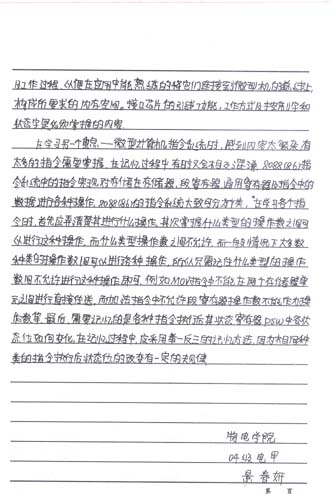 及工作过程,以便在应用中能熟练的将它们连接到微型机的总线上,
构成所要求的内存空间。接口芯片的引线功能,工作方式及控制字和
状态字是必须掌握的内容。
在学习另一重点——微型计算机指令系统时,感到内容太繁杂,有
太多的指令需要掌握,在记忆过程中有时又会相互混淆,8088(86)指
令系统中的指令实现对寄存器、存储器,段寄存器,通用寄存器及指令中的
数据进行各种操作,8088(86)的指令系统大致可分为类,在学习各个指
令时,首先应弄清楚其进行什么操作,其次掌握什么类型的操作数之间可
以进行这种操作,而什么类型操作数之间不允许,而一般情况下大多数
种类的操作数间可以进行各种操作,所以只需记住什么类型的操作
数间不允许进行这种操作即可,例如MOV指令中不能在两个存储器单
元之间进行直接传送,而加法指令中不允许段寄存器操作数不能作为操
作数等,最后,需要记忆的是各种指令执行后其状态寄存器PSW中各状
态位如何变化,在记忆过程中,应采用举一反三的记忆方法,因为相同种
类的指令执行后状态位的改变有一定的规律
物电学院
04级电甲
景春妍
第 页